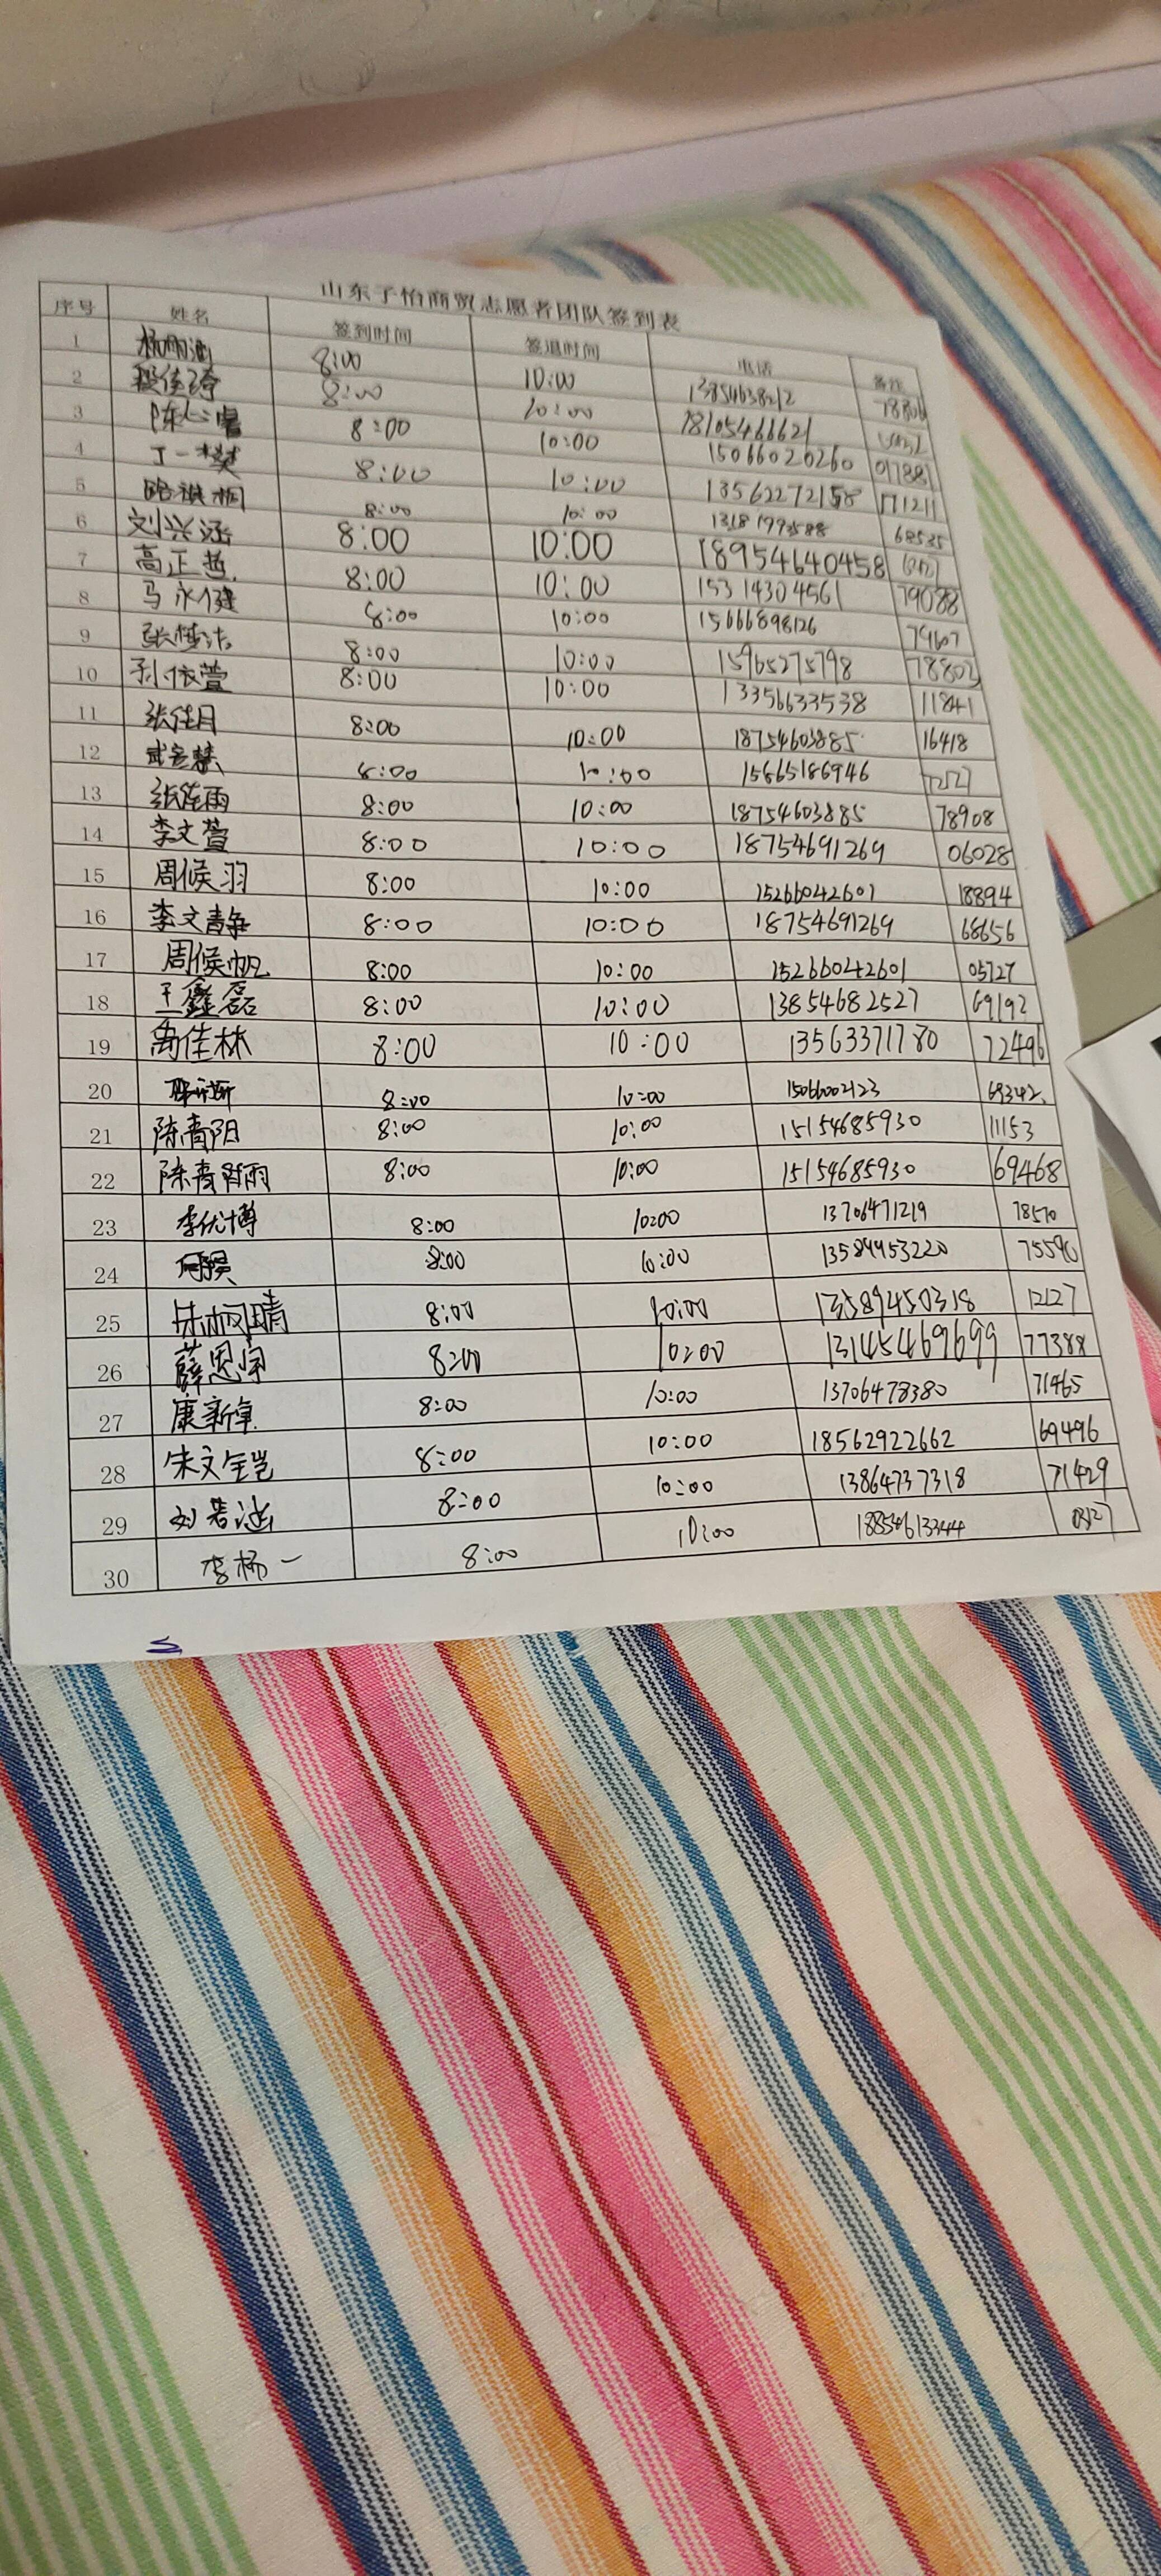 山东子怡商贸志愿者团队签到表
序号 姓名 签到时间 签退时间 电话 备注
1 8:00 10:00 13854638212 78806
2 8:00 10:00 18105466621
3 8:00 10:00 15066020260 017881
4 丁一 8:00 10:00 13562272158 171211
5 8:00 10:00 68535
6 刘兴涵 8:00 10:00 18954640458
7 高正 8:00 10:00 15314304561 79088
8 马永健 8:00 10:00 15666898126 74607
9 张 8:00 10:00 15965275798 78802
10 孙依萱 8:00 10:00 13356633538 11841
11 张佳月 8:00 10:00 18754603885 16418
12 8:00 10:00 15665186946
13 张佳雨 8:00 10:00 18754603885 78908
14 李文萱 8:00 10:00 18754691269 06028
15 周候羽 8:00 10:00 15266042601 18894
16 李文静 8:00 10:00 18754691269 68656
17 周候帆 8:00 10:00 15266042601 05727
18 王鑫磊 8:00 10:00 13854682527 69192
19 禹佳林 8:00 10:00 13563371780 72496
20 8:00 10:00 15066002123 69342
21 陈青阳 8:00 10:00 15154685930 11153
22 陈青 8:00 10:00 15154685930 69468
23 李优博 8:00 10:00 13706471219 78570
24 8:00 10:00 75590
25 8:00 10:00 13589450318 12127
26 薛思 8:00 10:00 13145469699 77388
27 康新卓 8:00 10:00 13706478380 71465
28 朱文 8:00 10:00 18562922662 69496
29 刘若涵 8:00 10:00 13864737318 71429
30 李杨一 8:00 10:00 18854613344